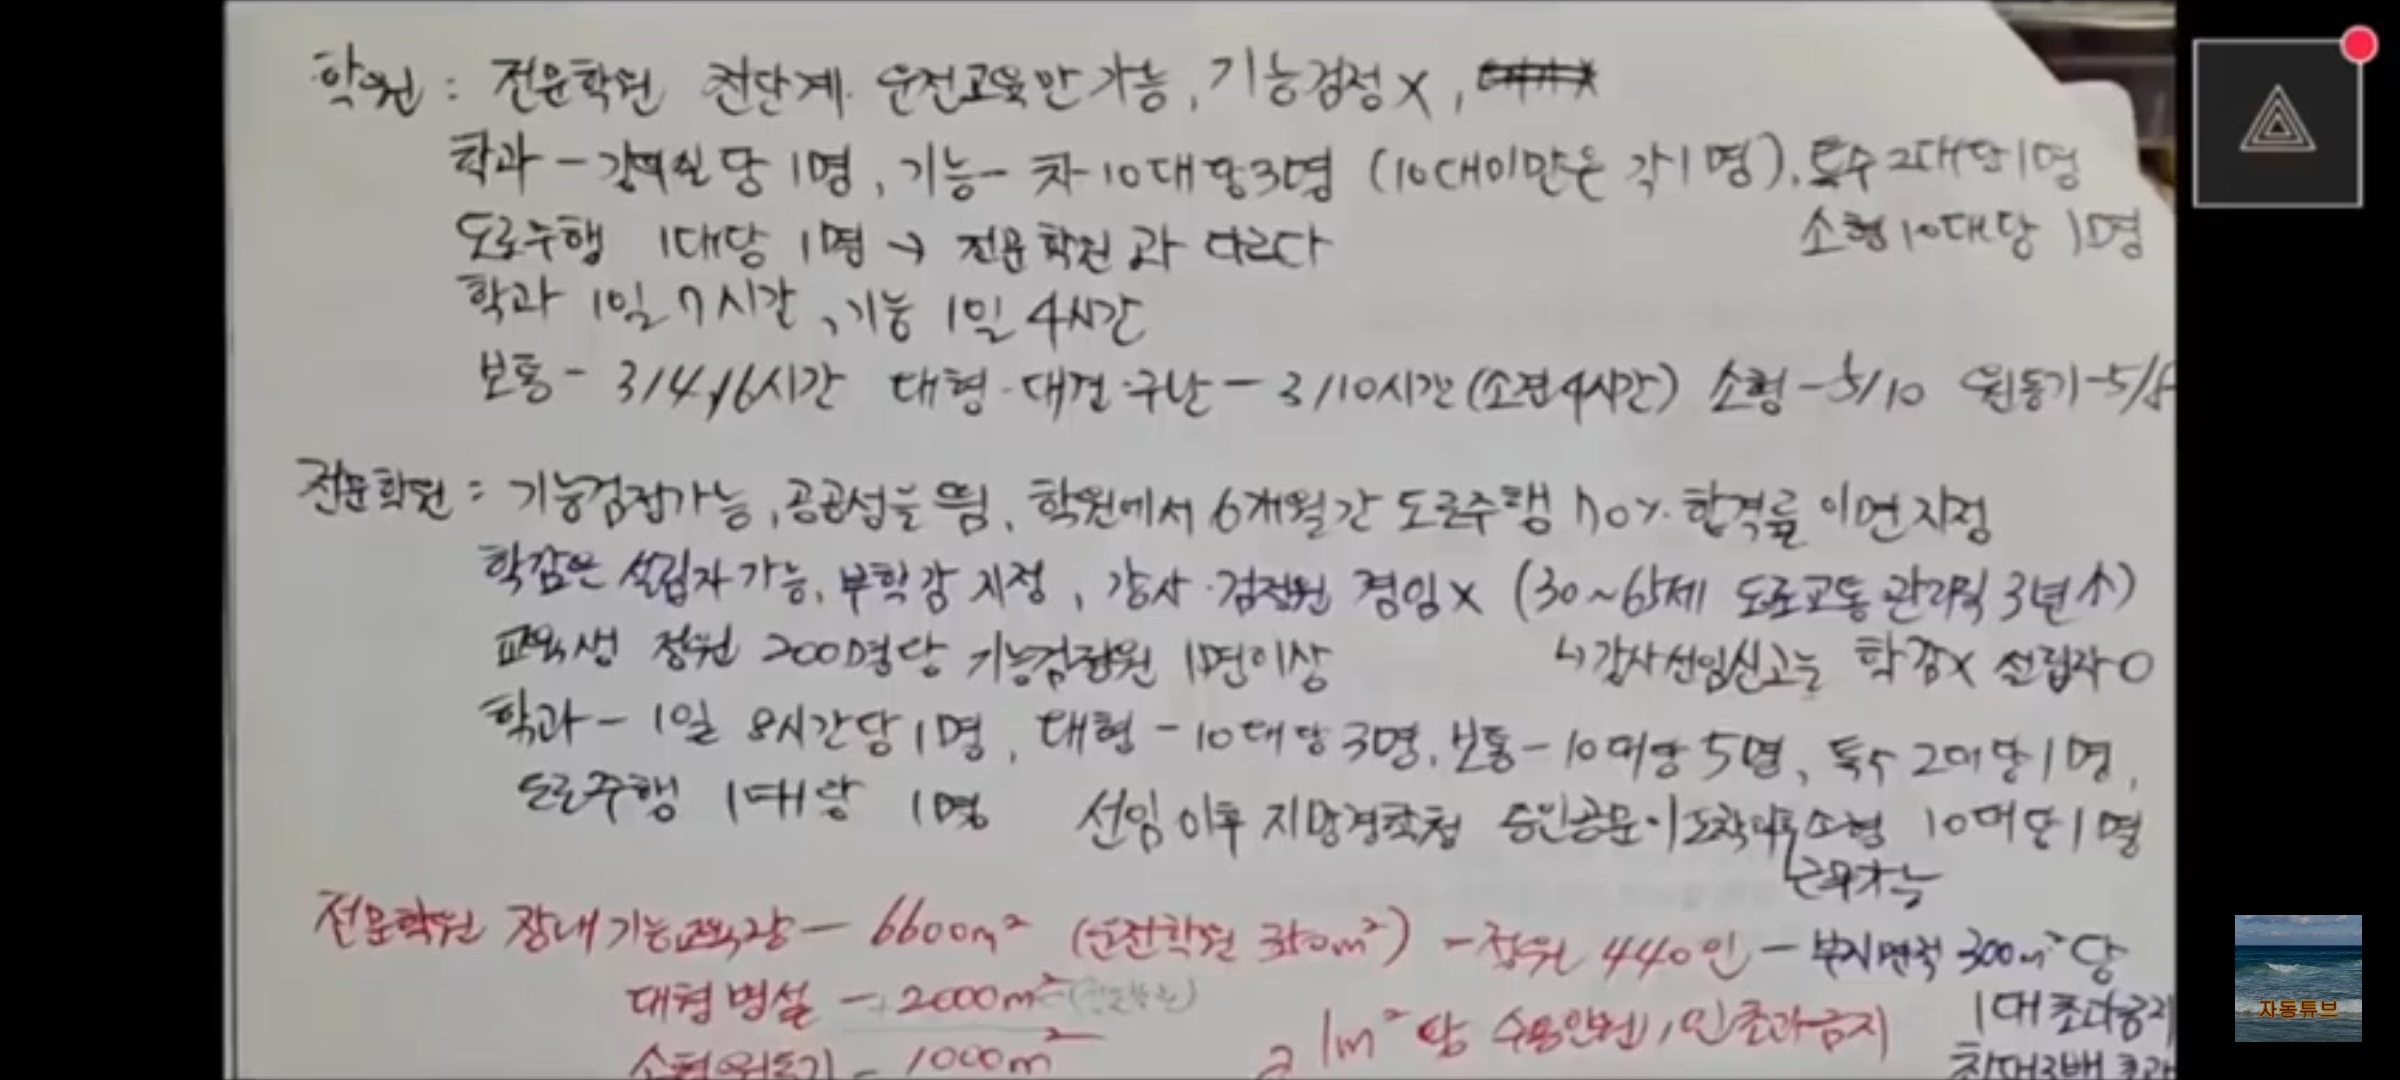 학원 : 전문학원 전단계 운전교육만 가능, 기능검정 X,
학과 - 강의실당 1명, 기능 - 차 10대당 3명 (10대미만은 각 1명), 특수 2대당 1명
소형 10대당 1명
도로주행 1대당 1명 → 전문학원과 다르다
학과 1일 7시간, 기능 1일 4시간
보통 - 3/4/6시간 대형·대견·구난 - 3/10시간 (소견 4시간) 소형 - 5/10 원동기 - 5/8
전문학원 : 기능검정가능, 공공성을 띔, 학원에서 6개월간 도로주행 70% 합격률이면 지정
학감은 설립자 가능, 부학감 지정, 강사·검정원 겸임 X (30~65세 도로교통 관리직 3년↑)
교육생 정원 200명당 기능검정원 1명이상 ↳강사선임신고는 학감X 설립자O
학과 - 1일 8시간당 1명, 대형 - 10대당 3명, 보통 - 10대당 5명, 특수 2대당 1명,
도로주행 1대당 1명 선임 이후 지방경찰청 승인공문이 소형 10대당 1명
근무가능
전문학원 장내기능교육장 - 6600m² (운전학원 m²) - 정원 440인 - 부지면적 300m²당
1대 초과금지
대형 병설 - +2000m²
1m²당 수용인원 1인 초과금지
소형 원동기 - 1000m²
자동튜브